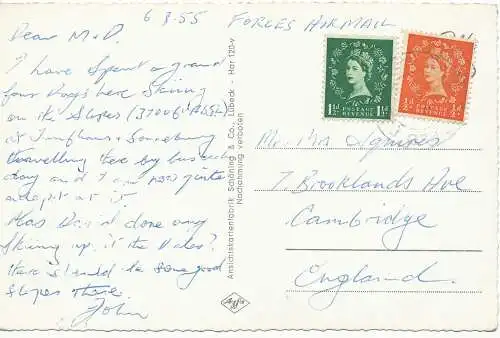 6 3.55 FORCES AIR MAIL
Dear M + D.
I have spent a grand
four days here skiing
on the slopes (3700ft ABSL)
at Torfhaus + Sonnenberg
travelling there by bus each
day and I am now quite
adept at it
Has David done any
Skiing up it the Dales?
there should be some good
slopes there.
John
Ansichtskartenfabrik Schöning & Co., Lübeck - Har 120-v
Nachahmung verboten
Agfa
1½d POSTAGE REVENUE 1½d
½d POSTAGE REVENUE ½d
Mr. Mrs Squires
7 Brooklands Ave
Cambridge
England.